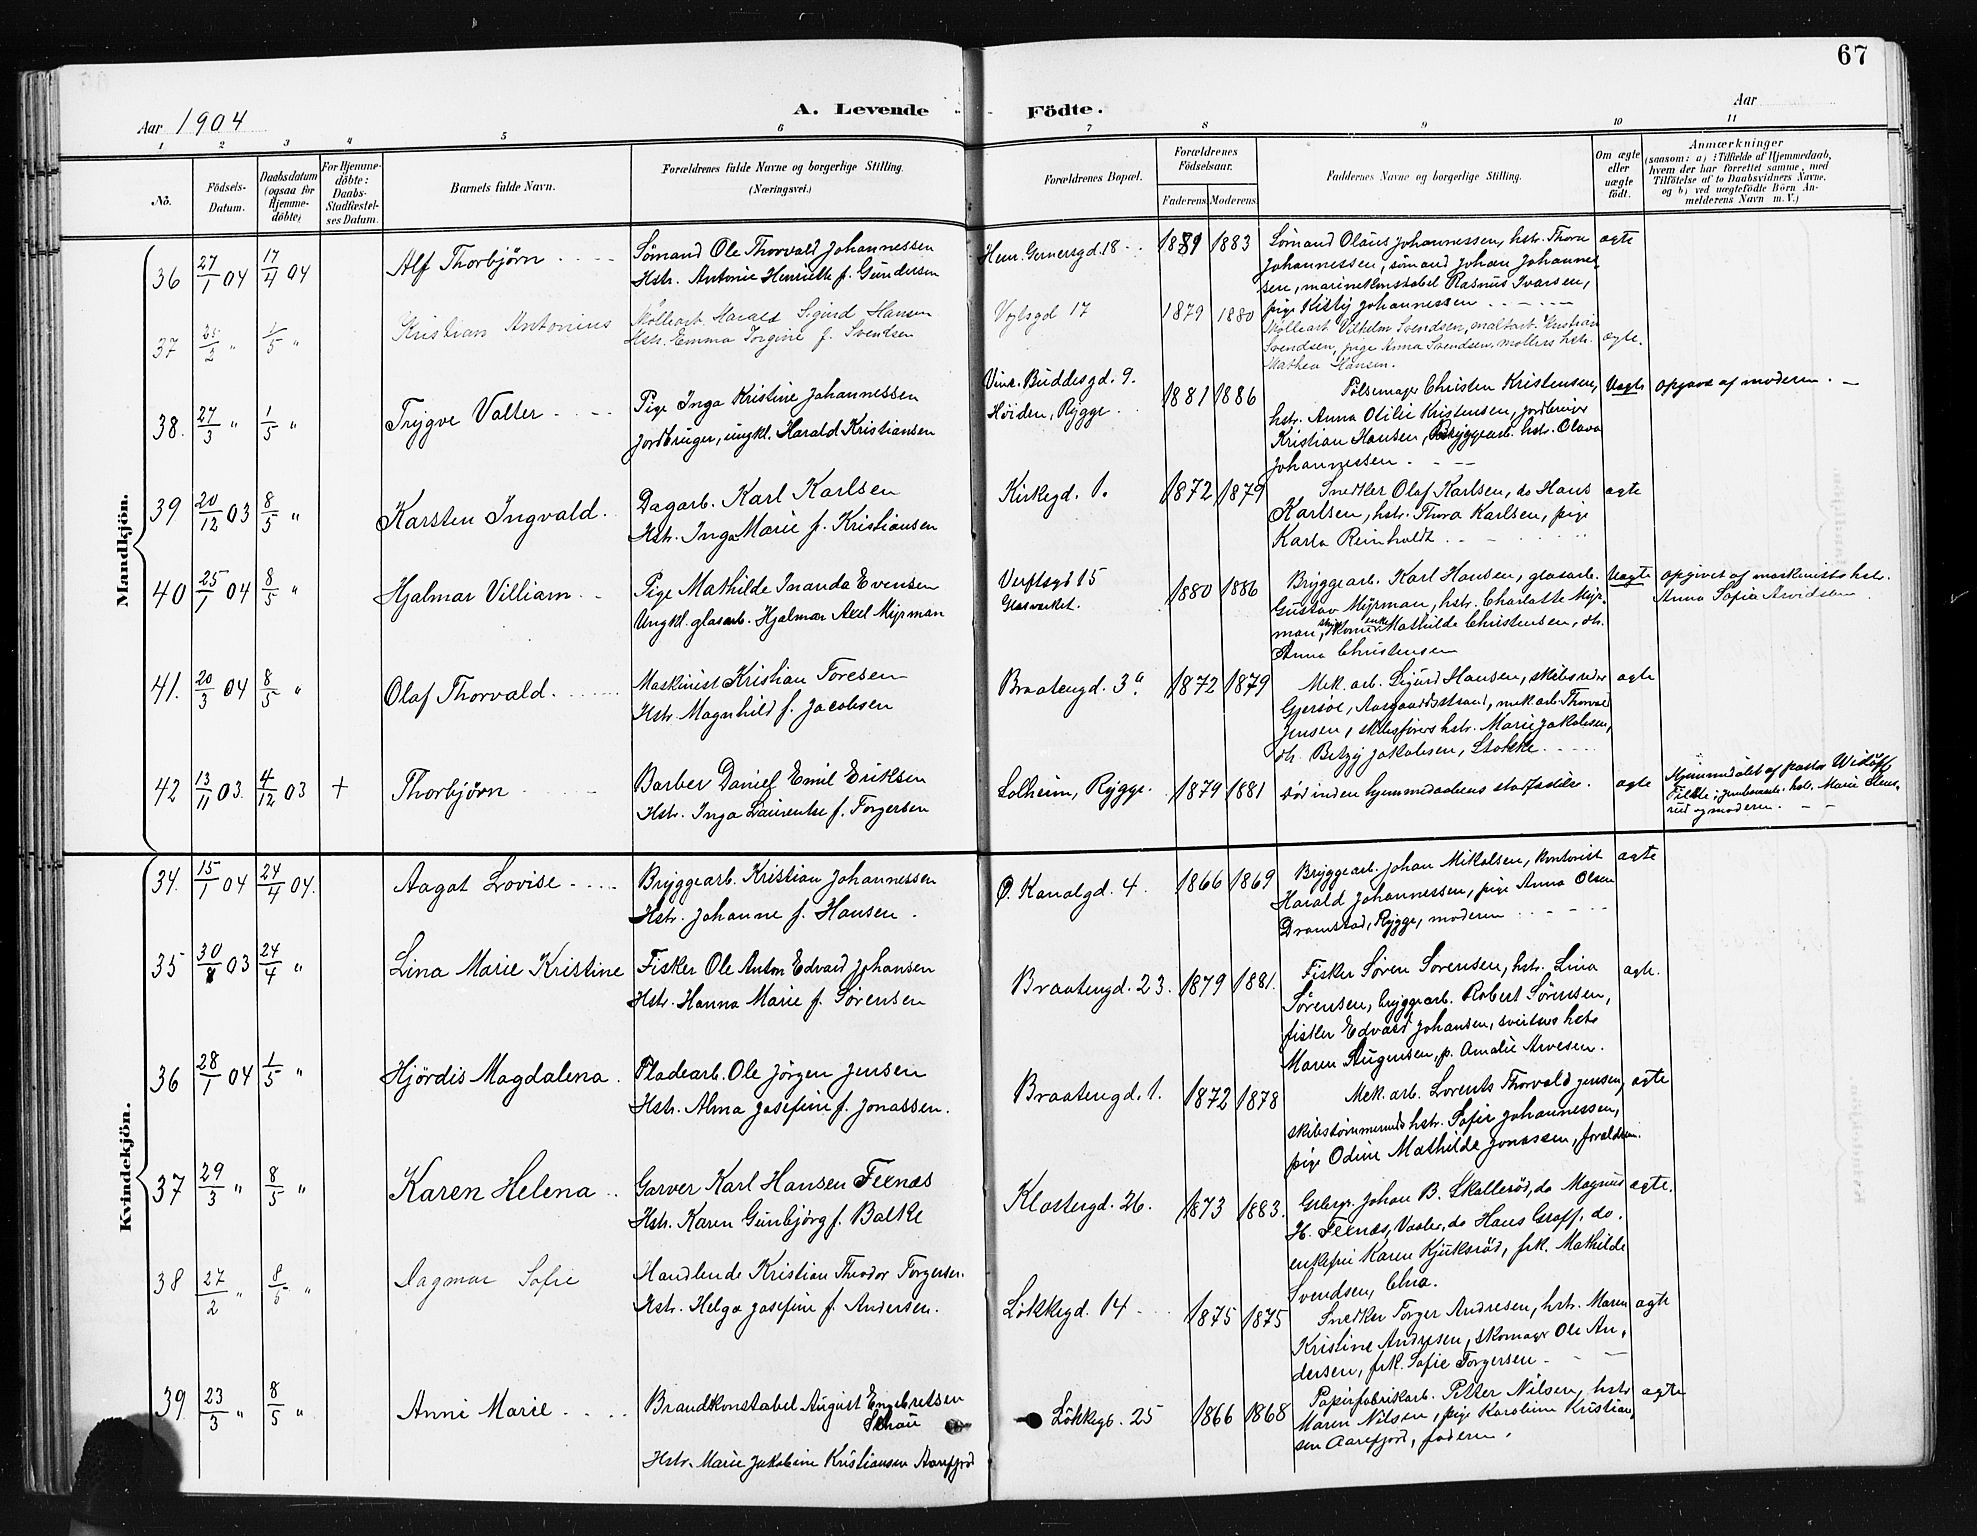 67
Aar 1904
A. Levende
Födte.
Aar
1 2 3 4 5 6 7 8 9 10 11
No.
Födsels-
Datum.
Daabsdatum
(ogsaa for
Hjemme-
döbte)
For Hjemme-
döbte:
Daabs-
Stadfæstel-
ses Datum.
Barnets fulde Navn.
Forældrenes fulde Navne og borgerlige Stilling.
(Næringsvei.)
Forældrenes Bopæl.
Forældrenes
Födselsaar.
Faderens Moderens
Faddernes Navne og borgerlige Stilling.
Om ægte
eller
uægte
födt.
Anmærkninger
(saasom: a) i Tilfælde af Hjemmedaab,
hvem der har forrettet samme, med
Tilföielse af to Daabsvidners Navne.
og b) ved uægtefödte Börn An-
melderens Navn m. V.)
Mandkjön.
36 27/1 04 17/4 04 Alf Thorbjørn
Sømand Ole Thorvald Johannessen
Hstr. Antonie Henriette f. Gundersen
Henr. Gernersgd. 18 1881 1883
Sømand Olaus Johannessen, hstr. Thora
Johannessen, sømand Johan Johannes-
sen, marinekonstabel Rasmus Ivarsen,
pige Kitty Johannessen
ægte
37 " 1/5 " Kristian Antonius
Mollearb. Harald Sigurd Hansen
Hstr. Emma Torgine f. Svendsen
Voglsgd 17 1879 1880
Mollearb. Vilhelm Svendsen, maltarb. Kristian
Svendsen, pige Anna Svendsen, møllers hstr.
Mathea Hansen.
ægte.
38. 27/3 " 1/5 " Trygve Valter
Pige Inga Kristine Johannessen
Jordbruger, ungkl. Harald Kristiansen
Vinc. Buddesgd. 9.
Høiden, Rygge. 1881 1886
Pølsemager Christen Kristensen,
hstr. Anna Otilie Kristensen, jordbruger
Kristian Hansen, Bryggearb. hstr. Olava
Johannessen.
Uægte opgave af moderen.
39 20/12 03 8/5 " Karsten Ingvald.
Dagarb. Karl Karlsen
Hstr. Inga Marie f. Kristiansen
Kirkegd. 1. 1872 1879
Snedker Olaf Karlsen, do Hans
Karlsen, hstr. Thora Karlsen, pige
Karla Reinholdt
ægte
40 25/1 04 8/5 " Hjalmar Villiam
Pige Mathilde Inanda Evensen
Ungkl. glasarb. Hjalmar Axel Myrman
Verftsgd 15
Glasverket. 1880 1886
Bryggearb. Karl Hansen, glasarb.
Gustav Myrman, hstr. Charlotte Myr-
man, enke Mathilde Christensen, do.
Anna Christensen
Uægte opgivet af maskinists hstr.
Anna Sofia Arvidsen
41. 20/3 04 8/5 " Olaf Thorvald.
Maskinist Kristian Toresen
Hstr. Magnhild f. Jacobsen
Braatengd. 3a. 1872 1879
Mek. arb. Sigurd Hansen, skibsreder
Gjersøe, Aasgaardsstrand, mek. arb. Thorvald
Jensen, skibsførers hstr. Marie Jakobsen,
do. Betzy Jakobsen, Stokke.
ægte
42 13/11 03. 4/12 03 + Thorbjørn
Barber Daniel Emil Eriksen
Hstr. Inga Laurentse f. Torgersen
Solheim, Rygge. 1879 1881
død inden hjemmedaabens stadfæstelse. ægte
Hjemmedøbt af pastor Widøff
hstr. Marie
og moderen.
Kvindekjön.
34. 15/1 04 24/4 04. Aagot Lovise
Bryggearb. Kristian Johannessen
Hstr. Johanne f. Hansen.
Ø. Kanalgd. 4. 1866 1869
Bryggearb. Johan Mikalsen, kontorist
Harald Johannessen, pige Anna Olsen
Dramstad, Rygge, moderen
ægte
35 30/ 03 24/4 " Lina Marie Kristine
Fisker Ole Anton Edvard Johansen
Hstr. Hanna Marie f. Sørensen
Braatengd. 23. 1879 1881.
Fisker Søren Sørensen, hstr. Lina
Sørensen, bryggearb. Robert Sørensen,
fisker Edvard Johansen, hstr
Maren Augensen, p. Amalie Arvesen.
ægte.
36 28/1 04 1/5 " Hjördis Magdalena.
Pladearb. Ole Jørgen Jensen
Hstr. Alma Josefine f. Jonassen.
Braatengd. 1. 1872 1878
Mek. arb. Lorents Thorvald Jensen,
skibstømmermands hstr. Sofie Johannessen,
pige Odine Mathilde Jonassen, forældrene.
ægte
37 29/3 " 8/5 " Karen Helena
Garver Karl Hansen Feenæs
Hstr. Karen Gunbjørg f. Balke
Klostergd. 26. 1873 1883.
Grbrgr. Johan B. Skallerød, do Magnus
H. Feenæs, Vaaler, do Hans Graff, do.
enkefru Karen Kjuksrød, frk. Mathilde
Svendsen, Chra.
ægte.
38 27/2 " 8/5 " Dagmar Sofie
Handlende Kristian Theodor Torgersen.
Hstr. Helga Josefine f. Andersen.
Løkkegd. 14 1875 1875
Snedker Torger Andresen, hstr. Maren
Kristine Andresen, skomagr Ole An-
dersen, frk. Sofie Torgersen
ægte
39. 23/3 " 8/5 " Anni Marie
Brandkonstabel August Engebretsen
Schau
Hstr. Marie Jakobine Kristiansen Aarefjord
Løkkegd. 25 1866 1868
Papirfabrikarb. Petter Nilsen, hstr
Maren Nilsen, pige Karoline Kristian-
sen Aarefjord, faderen.
ægte